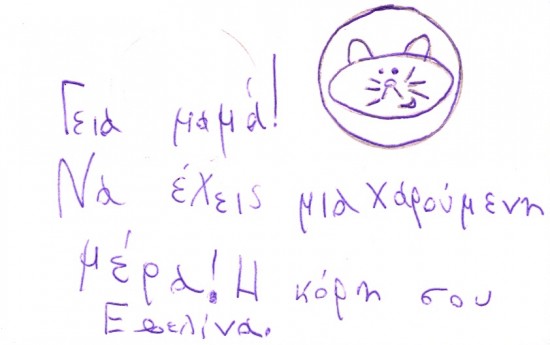 Γεια μαμά!
Να έχεις μια χάρούμενη
μέρα! Η κόρη σου